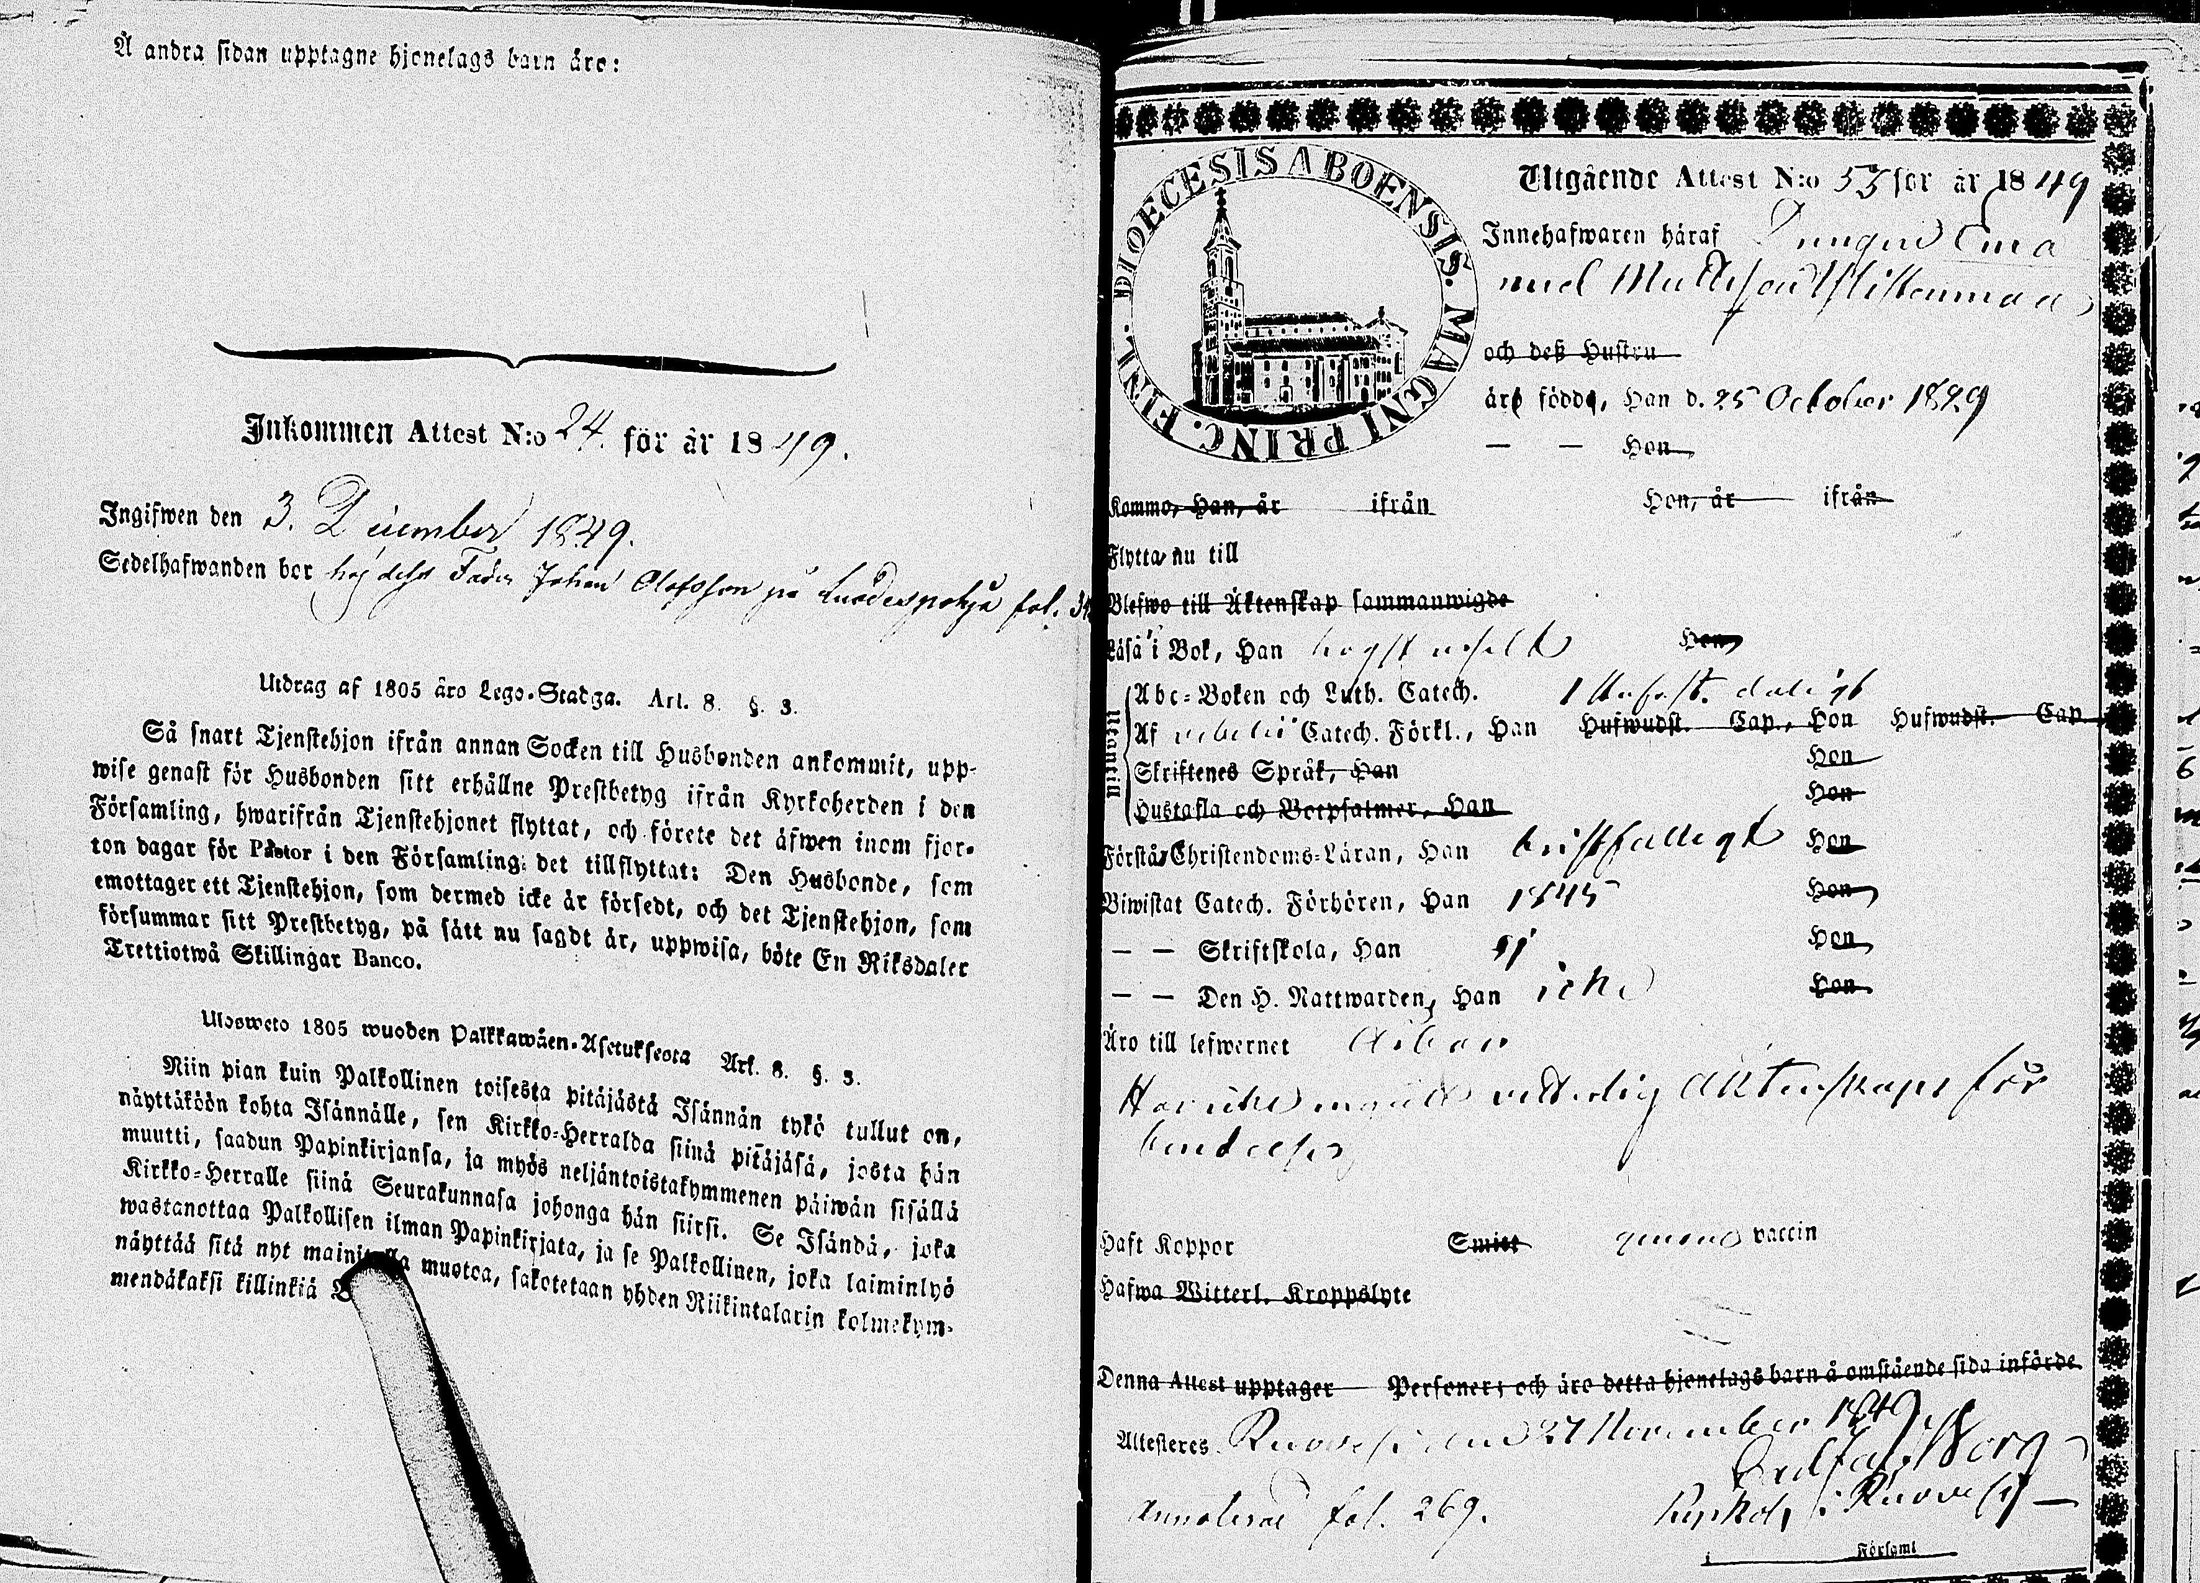 Å andra sidan upptagne hjonelags barn äro:
Inkommen Attest N:o 24. för år 1849.
Ingifwen den 3. December 1849.
Sedelhafwanden bor hos dess Fader Johan Olofsson på fol.
Utdrag af 1805 åro Lego-Stadga. Art. 8. §. 3.
Så snart Tjenstehjon ifrån annan Socken till Husbonden ankommit, upp-
wise genast för Husbonden sitt erhållne Prestbetyg ifrån Kyrkoherden i den
Församling, hwarifrån Tjenstehjonet flyttat, och förete det äfwen inom fjor-
ton dagar för Pastor i den Församling, det tillflyttat: Den Husbonde, som
emottager ett Tjenstehjon, som dermed icke är försedt, och det Tjenstehjon, som
försummar sitt Prestbetyg, på sätt nu sagdt är, uppwisa, böte En Riksdaler
Trettiotwå Skillingar Banco.
Ulosweto 1805 wuoden Palkkawäen-Asetuksesta Art. 8. §. 3.
Niin pian kuin Palkollinen toisesta pitäjästä Isännän tykö tullut on,
näyttäköön kohta Isännälle, sen Kirkko-Herralda siinä pitäjäsä, josta hän
muutti, saadun Papinkirjansa, ja myös neljäntoistakymmenen päiwän sisällä
Kirkko-Herralle siinä Seurakunnasa johonga hän siirsi. Se Isändä, joka
wastanottaa Palkollisen ilman Papinkirjata, ja se Palkollinen, joka laiminlyö
näyttää sitä nyt mainitulla muotoa, sakotetaan yhden Riikintalarin kolmekym-
mendäkaksi killinkiä
DIOECESIS ABOENSIS. MAGNI PRINC. FINL.
Utgående Attest N:o 55 för år 1849
Innehafwaren häraf Drängen Ema
nuel Mattsson
och deß Hustru
äro födde, Han d. 25 October 1829
— — Hon
Kommo, Han, år ifrån Hon, år ifrån
Flytta nu till
Blefwo till Äktenskap sammanwigde
Läsa i Bok, Han högst uselt Hon
Utantill
Abc-Boken och Luth. Catech. dåligt
Af Catech. Förkl., Han Hufwudst. Cap., Hon Hufwudst. Cap.
Skriftenes Språk, Han Hon
Hustafla och Botpsalmer, Han Hon
Förstå Christendoms-Läran, Han bristfälligt Hon
Biwistat Catech. Förhören, Han 1845 Hon
— — Skriftskola, Han ej Hon
— — Den H. Nattwarden, Han icke Hon
Äro till lefwernet
Har icke ingått witterlig äktenskaps för
bindelse
Haft Koppor Smitt genom vaccin
Hafwa Witterl. Kroppslyte
Denna Attest upptager Personer; och äro detta hjonelags barn å omstående sida införde.
Attesteres Ruovesi den 27 November 1849
Berg
Kyrkoh. i Ruovesi
Annoterad fol. 269.
Församl